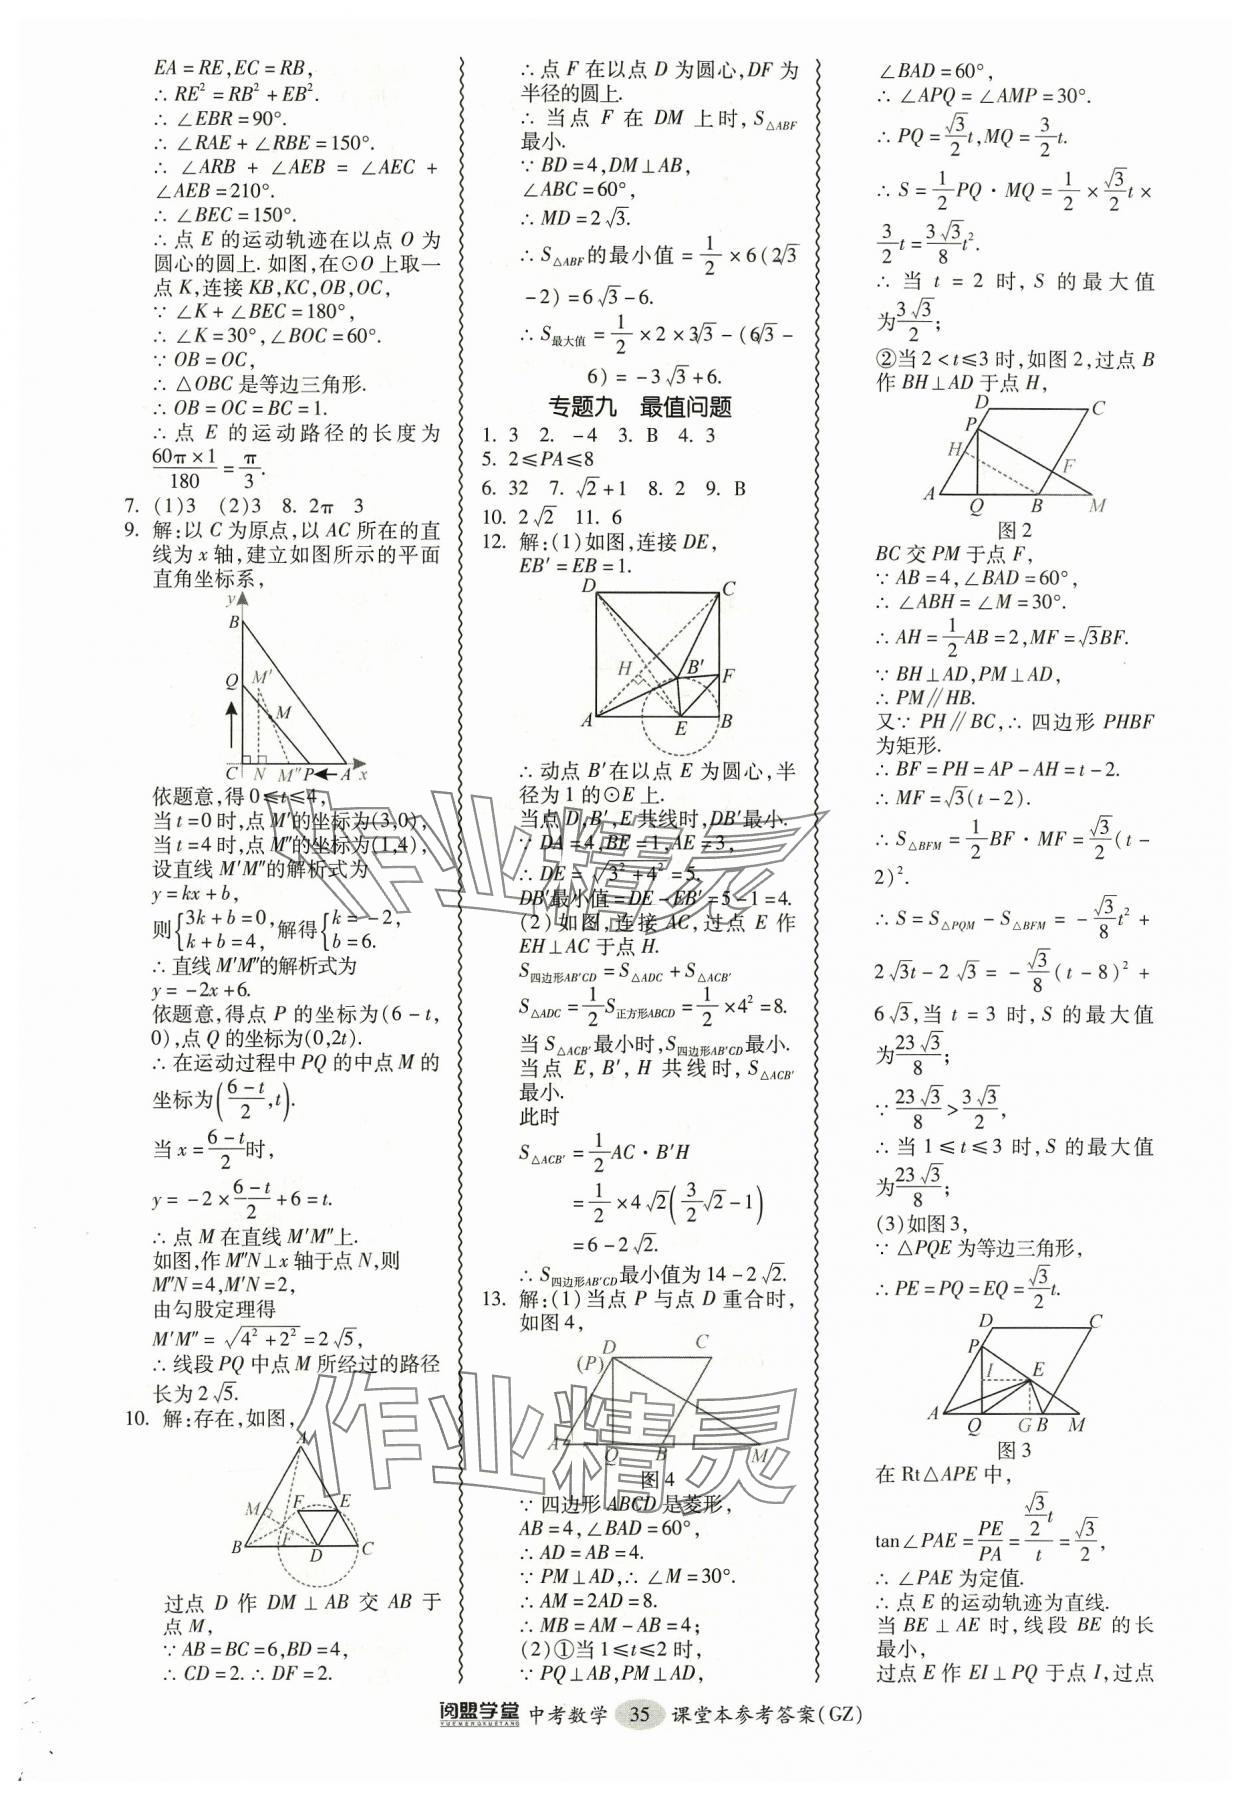 EA=RE,EC=RB,
∴RE²=RB²+EB².
∴∠EBR=90°.
∴∠RAE+∠RBE=150°.
∴∠ARB+∠AEB=∠AEC+
∠AEB=210°.
∴∠BEC=150°.
∴点E的运动轨迹在以点O为
圆心的圆上.如图,在⊙O上取一
点K,连接KB,KC,OB,OC,
∵∠K+∠BEC=180°,
∴∠K=30°,∠BOC=60°.
∵OB=OC,
∴△OBC是等边三角形.
∴OB=OC=BC=1.
∴点E的运动路径的长度为
60π×1/180=π/3.
7. (1)3 (2)3 8. 2π 3
9. 解:以C为原点,以AC所在的直
线为x轴,建立如图所示的平面
直角坐标系,
y
B
Q M′
M
C N M″ P A x
依题意,得0≤t≤4,
当t=0时,点M′的坐标为(3,0),
当t=4时,点M″的坐标为(1,4),
设直线M′M″的解析式为
y=kx+b,
则{3k+b=0, k+b=4, 解得{k=-2, b=6.
∴直线M′M″的解析式为
y=-2x+6.
依题意,得点P的坐标为(6-t,
0),点Q的坐标为(0,2t).
∴在运动过程中PQ的中点M的
坐标为((6-t)/2,t).
当x=(6-t)/2时,
y=-2×(6-t)/2+6=t.
∴点M在直线M′M″上.
如图,作M″N⊥x轴于点N,则
M″N=4,M′N=2,
由勾股定理得
M′M″=√(4²+2²)=2√5,
∴线段PQ中点M所经过的路径
长为2√5.
10. 解:存在,如图,
A
M F E
F
B D C
过点D作DM⊥AB交AB于
点M,
∵AB=BC=6,BD=4,
∴CD=2.∴DF=2.
∴点F在以点D为圆心,DF为
半径的圆上.
∴当点F在DM上时,S△ABF
最小.
∵BD=4,DM⊥AB,
∠ABC=60°,
∴MD=2√3.
∴S△ABF的最小值=1/2×6(2√3
-2)=6√3-6.
∴S最大值=1/2×2×3√3-(6√3-
6)=-3√3+6.
专题九 最值问题
1. 3 2. -4 3. B 4. 3
5. 2≤PA≤8
6. 32 7. √2+1 8. 2 9. B
10. 2√2 11. 6
12. 解:(1)如图,连接DE,
EB′=EB=1.
D C
H B′ F
A E B
∴动点B′在以点E为圆心,半
径为1的⊙E上.
当点D,B′,E共线时,DB′最小.
∵DA=4,BE=1,AE=3,
∴DE=√(3²+4²)=5.
DB′最小值=DE-EB′=5-1=4.
(2)如图,连接AC,过点E作
EH⊥AC于点H.
S四边形AB′CD=S△ADC+S△ACB′
S△ADC=1/2S正方形ABCD=1/2×4²=8.
当S△ACB′最小时,S四边形AB′CD最小.
当点E,B′,H共线时,S△ACB′
最小.
此时
S△ACB′=1/2AC·B′H
=1/2×4√2(3/2√2-1)
=6-2√2.
∴S四边形AB′CD最小值为14-2√2.
13. 解:(1)当点P与点D重合时,
如图4,
D C
(P)
A Q B M
图4
∵四边形ABCD是菱形,
AB=4,∠BAD=60°,
∴AD=AB=4.
∵PM⊥AD,∴∠M=30°.
∴AM=2AD=8.
∴MB=AM-AB=4;
(2)①当1≤t≤2时,
∵PQ⊥AB,PM⊥AD,
∠BAD=60°,
∴∠APQ=∠AMP=30°.
∴PQ=√3/2t,MQ=3/2t.
∴S=1/2PQ·MQ=1/2×√3/2t×
3/2t=3√3/8t².
∴当t=2时,S的最大值
为3√3/2;
②当2<t≤3时,如图2,过点B
作BH⊥AD于点H,
D C
P
H F
A Q B M
图2
BC交PM于点F,
∵AB=4,∠BAD=60°,
∴∠ABH=∠M=30°.
∴AH=1/2AB=2,MF=√3BF.
∵BH⊥AD,PM⊥AD,
∴PM∥HB.
又∵PH∥BC,∴四边形PHBF
为矩形.
∴BF=PH=AP-AH=t-2.
∴MF=√3(t-2).
∴S△BFM=1/2BF·MF=√3/2(t-
2)².
∴S=S△PQM-S△BFM=-√3/8t²+
2√3t-2√3=-√3/8(t-8)²+
6√3,当t=3时,S的最大值
为23√3/8;
∵23√3/8>3√3/2,
∴当1≤t≤3时,S的最大值
为23√3/8;
(3)如图3,
∵△PQE为等边三角形,
∴PE=PQ=EQ=√3/2t.
D C
P
I E
A Q G B M
图3
在Rt△APE中,
tan∠PAE=PE/PA=(√3/2t)/t=√3/2,
∴∠PAE为定值.
∴点E的运动轨迹为直线.
当BE⊥AE时,线段BE的长
最小,
过点E作EI⊥PQ于点I,过点
作业精灵
作业精灵
阅盟学堂 中考数学 35 课堂本参考答案(GZ)
YUEMENGXUETANG